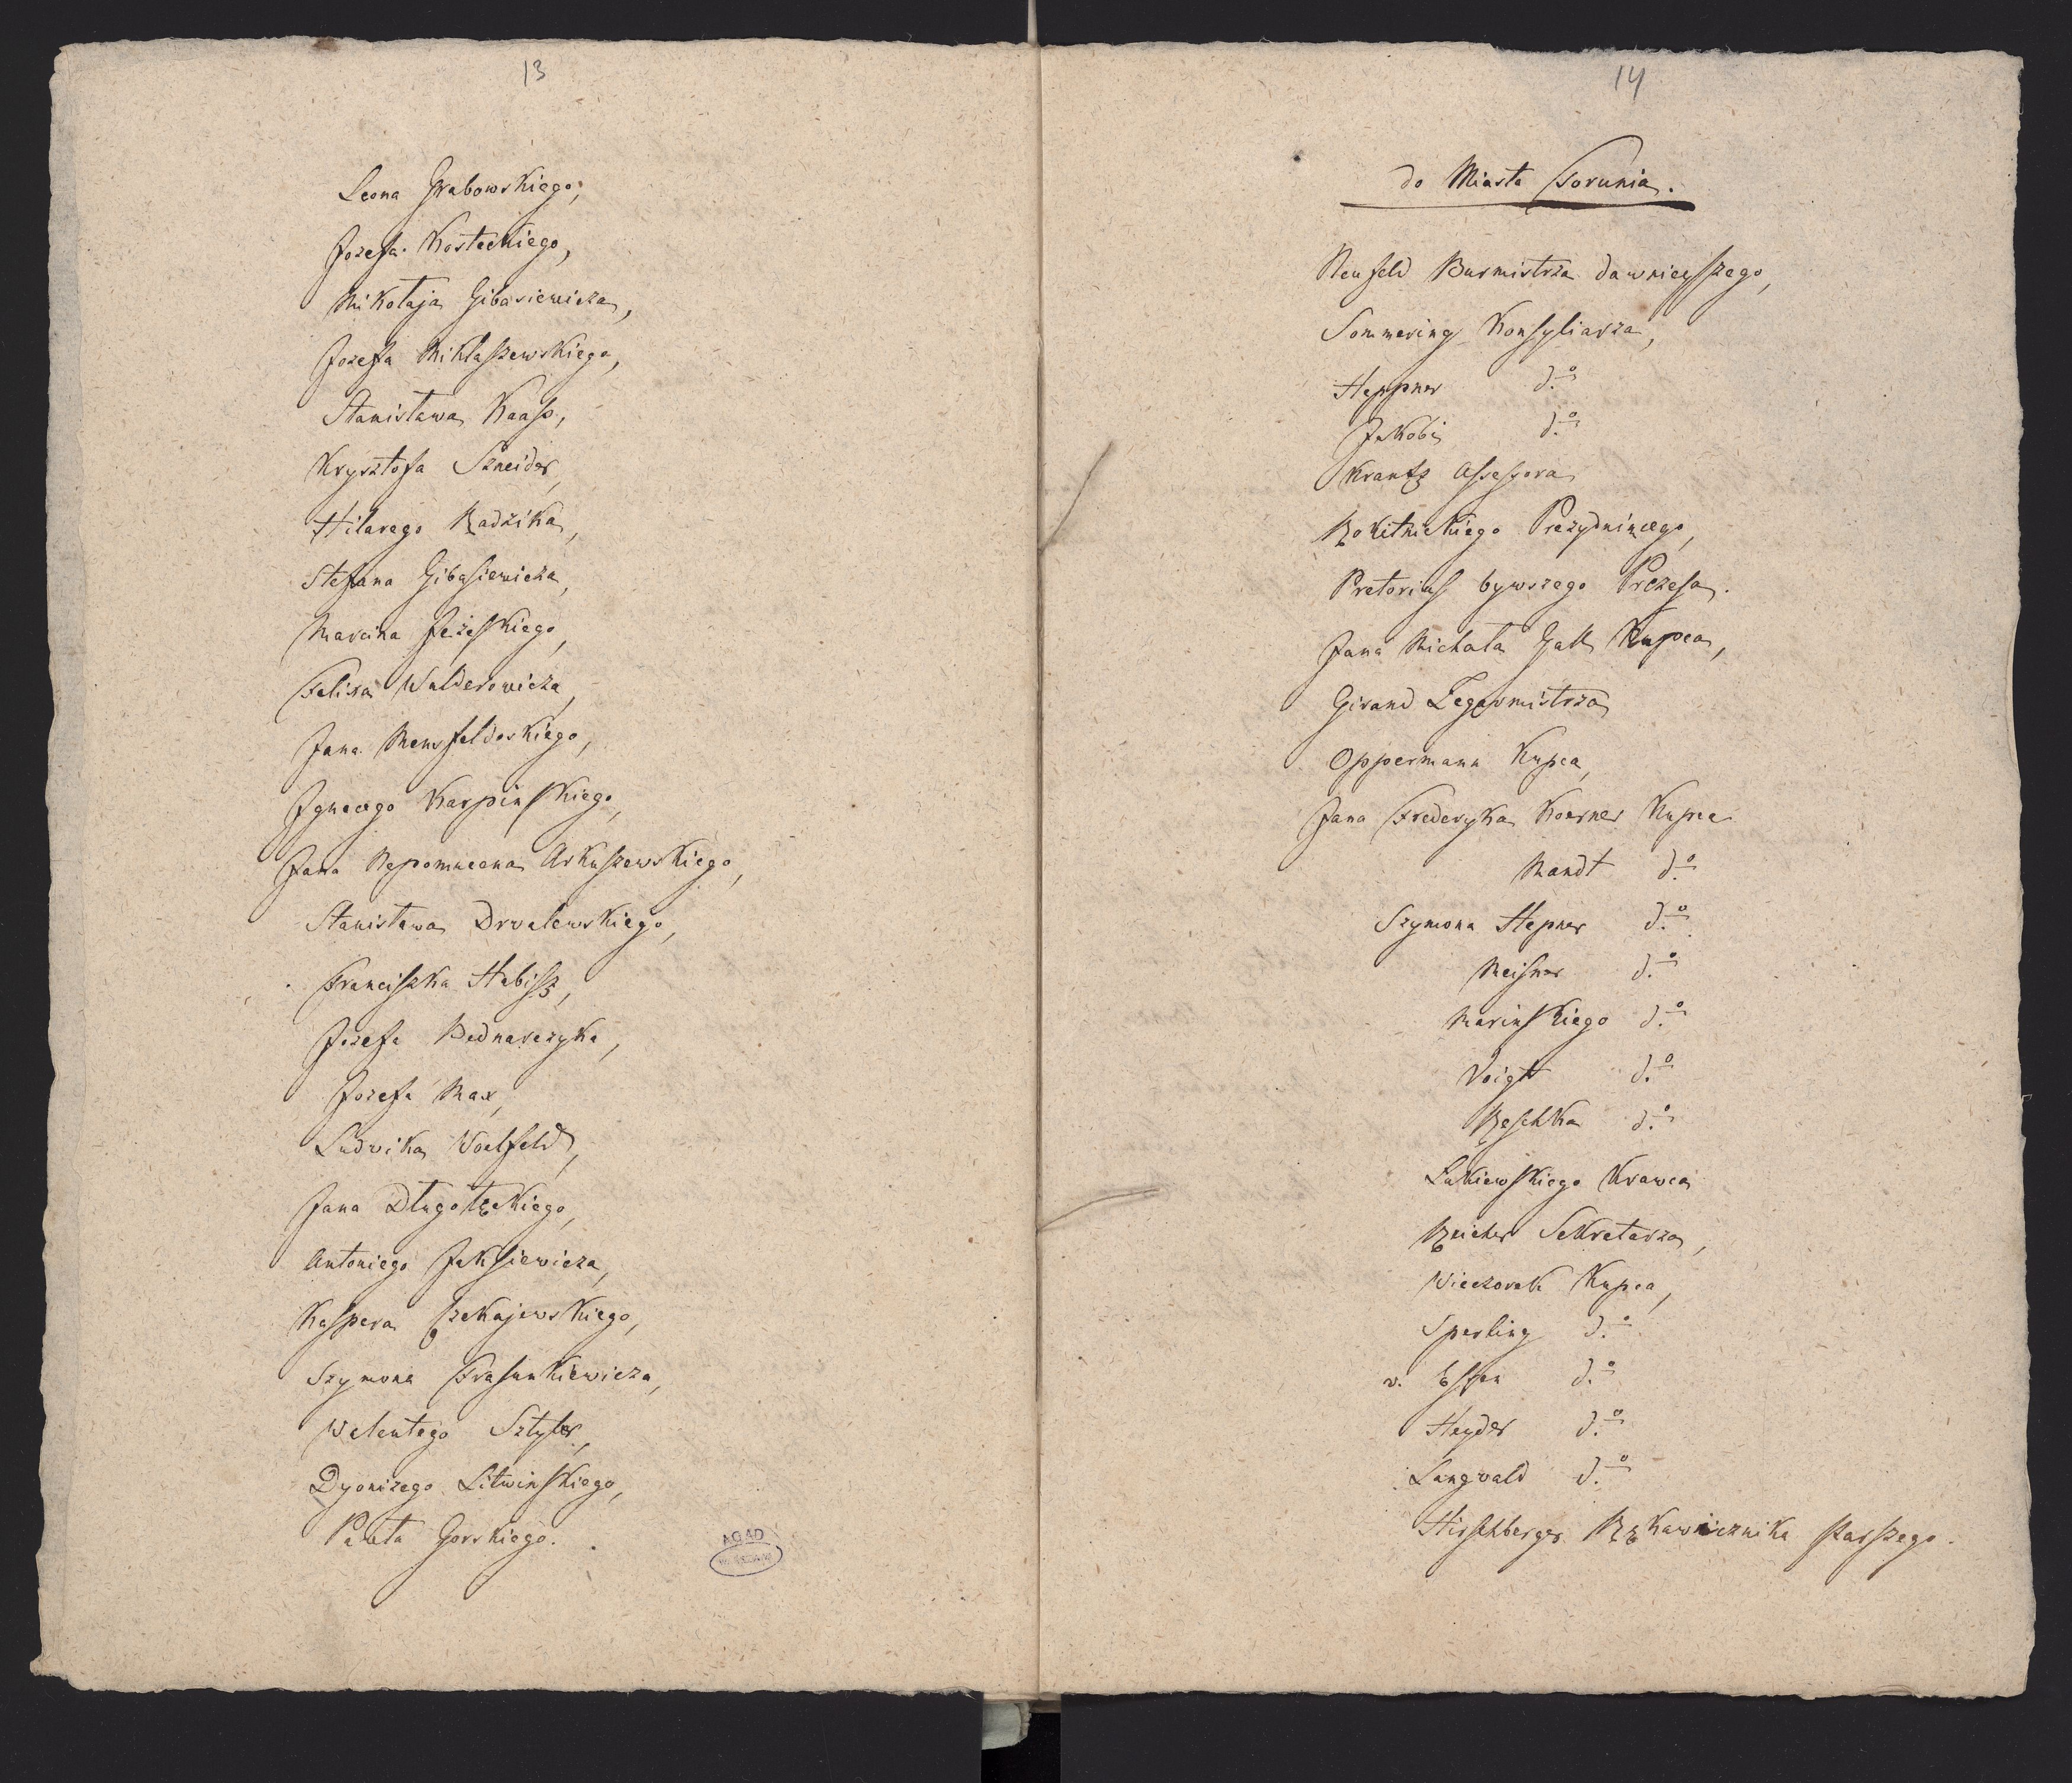 13
Leona Grabowskiego,
Jozefa Kosteckiego,
Mikołaja Gibasiewicza,
Jozefa Miklaszewskiego,
Stanisława Kaass,
Krysztofa Szneider,
Hilarego Radzika,
Stefana Gibasiewicza,
Marcina Jeżeskiego,
Felixa Walderowicza,
Jana Mensfeldoskiego,
Ignacego Karpinskiego,
Jana Nepomucena Arkuszewskiego,
Stanisława Drvalewskiego,
Franciszka Habisz,
Jozefa Bednarczyka,
Jozefa Max,
Ludvika Voelfeld,
Jana Długołęckiego,
Antoniego Jaksiewicza,
Kaspera Czekajewskiego,
Szymona Frasunkiewicza,
Walentego Sztyler,
Dyonizego Litwinskiego,
Pawła Gorskiego.
AGAD
14
do Miasta Torunia.
Neufeld Burmistrza dawnieyszego,
Sommering Konsyliarza,
Heppner d.o
Jakobi d.o
Krantz Assessora
Rokitnickiego Prezydującego,
Pretorius bywszego Prezesa.
Jana Michała Gall Kupca,
Girand Zegarmistrza
Oppermann Kupca,
Jana Frederyka Koerner Kupca
Mandt d.o
Szymona Hepner d.o
Meisner d.o
Marinskiego d.o
Voigt d.o
Reschka d.o
Lukiewskiego Krawca
Reicher Sekretarza,
Wieczorek Kupca,
Sperling d.o
v. Essen d.o
Heyder d.o
Langvald d.o
Hirschberger Rękawicznika starszego.